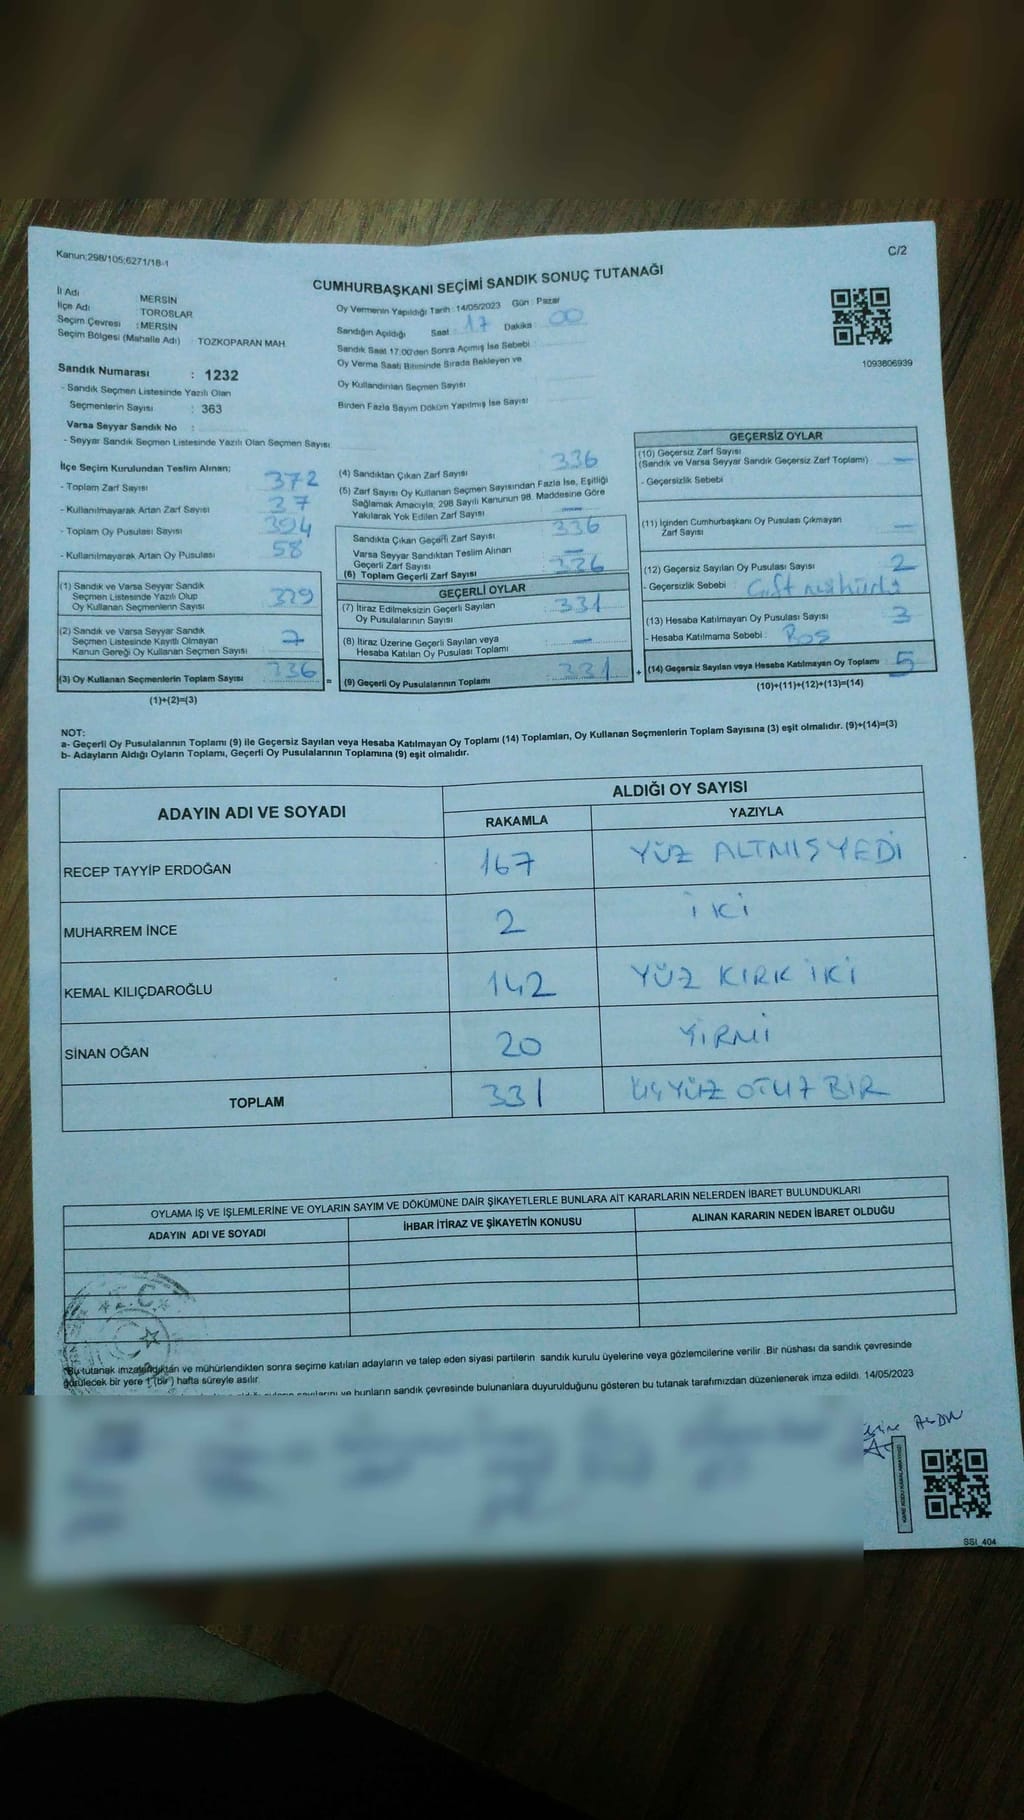 Kanun;298/105;6271/18-1
C/2
CUMHURBAŞKANI SEÇİMİ SANDIK SONUÇ TUTANAĞI
İl Adı MERSİN
İlçe Adı TOROSLAR
Seçim Çevresi : MERSİN
Seçim Bölgesi (Mahalle Adı) TOZKOPARAN MAH
Sandık Numarası : 1232
- Sandık Seçmen Listesinde Yazılı Olan
Seçmenlerin Sayısı : 363
Varsa Seyyar Sandık No :
- Seyyar Sandık Seçmen Listesinde Yazılı Olan Seçmen Sayısı
Oy Vermenin Yapıldığı Tarih : 14/05/2023 Gün : Pazar
Sandığın Açıldığı Saat : 17 Dakika : 00
Sandık Saat 17:00'den Sonra Açımış İse Sebebi
Oy Verme Saati Bitiminde Sırada Bekleyen ve
Oy Kullandırılan Seçmen Sayısı
Birden Fazla Sayım Döküm Yapılmış İse Sayısı
1093806939
İlçe Seçim Kurulundan Teslim Alınan;
- Toplam Zarf Sayısı 372
- Kullanılmayarak Artan Zarf Sayısı 37
- Toplam Oy Pusulası Sayısı
- Kullanılmayarak Artan Oy Pusulası 58
(1) Sandık ve Varsa Seyyar Sandık
Seçmen Listesinde Yazılı Olup
Oy Kullanan Seçmenlerin Sayısı 329
(2) Sandık ve Varsa Seyyar Sandık
Seçmen Listesinde Kayıtlı Olmayan
Kanun Gereği Oy Kullanan Seçmen Sayısı 7
(3) Oy Kullanan Seçmenlerin Toplam Sayısı 336 =
(1)+(2)=(3)
(4) Sandıktan Çıkan Zarf Sayısı 336
(5) Zarf Sayısı Oy Kullanan Seçmen Sayısından Fazla İse, Eşitliği
Sağlamak Amacıyla, 298 Sayılı Kanunun 98. Maddesine Göre
Yakılarak Yok Edilen Zarf Sayısı —
Sandıkta Çıkan Geçerli Zarf Sayısı 336
Varsa Seyyar Sandıktan Teslim Alınan
Geçerli Zarf Sayısı —
(6) Toplam Geçerli Zarf Sayısı 336
GEÇERLİ OYLAR
(7) İtiraz Edilmeksizin Geçerli Sayılan
Oy Pusulasının Sayısı 331
(8) İtiraz Üzerine Geçerli Sayılan veya
Hesaba Katılan Oy Pusulası Toplamı —
(9) Geçerli Oy Pusulalarının Toplamı 331 +
GEÇERSİZ OYLAR
(10) Geçersiz Zarf Sayısı
(Sandık ve Varsa Seyyar Sandık Geçersiz Zarf Toplamı) —
- Geçersizlik Sebebi
(11) İçinden Cumhurbaşkanı Oy Pusulası Çıkmayan
Zarf Sayısı —
(12) Geçersiz Sayılan Oy Pusulası Sayısı 2
- Geçersizlik Sebebi : Çift mühürlü
(13) Hesaba Katılmayan Oy Pusulası Sayısı 3
- Hesaba Katılmama Sebebi : Boş
(14) Geçersiz Sayılan veya Hesaba Katılmayan Oy Toplamı 5
(10)+(11)+(12)+(13)=(14)
NOT:
a- Geçerli Oy Pusulalarının Toplamı (9) ile Geçersiz Sayılan veya Hesaba Katılmayan Oy Toplamı (14) Toplamları, Oy Kullanan Seçmenlerin Toplam Sayısına (3) eşit olmalıdır. (9)+(14)=(3)
b- Adayların Aldığı Oyların Toplamı, Geçerli Oy Pusulalarının Toplamına (9) eşit olmalıdır.
ADAYIN ADI VE SOYADI
ALDIĞI OY SAYISI
RAKAMLA YAZIYLA
RECEP TAYYİP ERDOĞAN 167 YÜZ ALTMIŞ YEDİ
MUHARREM İNCE 2 İKİ
KEMAL KILIÇDAROĞLU 142 YÜZ KIRK İKİ
SİNAN OĞAN 20 YİRMİ
TOPLAM 331 ÜÇ YÜZ OTUZ BİR
OYLAMA İŞ VE İŞLEMLERİNE VE OYLARIN SAYIM VE DÖKÜMÜNE DAİR ŞİKAYETLERLE BUNLARA AİT KARARLARIN NELERDEN İBARET BULUNDUKLARI
ADAYIN ADI VE SOYADI İHBAR İTİRAZ VE ŞİKAYETİN KONUSU ALINAN KARARIN NEDEN İBARET OLDUĞU
*Bu tutanak imzalandıktan ve mühürlendikten sonra seçime katılan adayların ve talep eden siyasi partilerin sandık kurulu üyelerine veya gözlemcilerine verilir. Bir nüshası da sandık çevresinde
görülecek bir yere 1 (bir) hafta süreyle asılır.
sayılarını ve bunların sandık çevresinde bulunanlara duyurulduğunu gösteren bu tutanak tarafımızdan düzenlenerek imza edildi. 14/05/2023
SSI_404